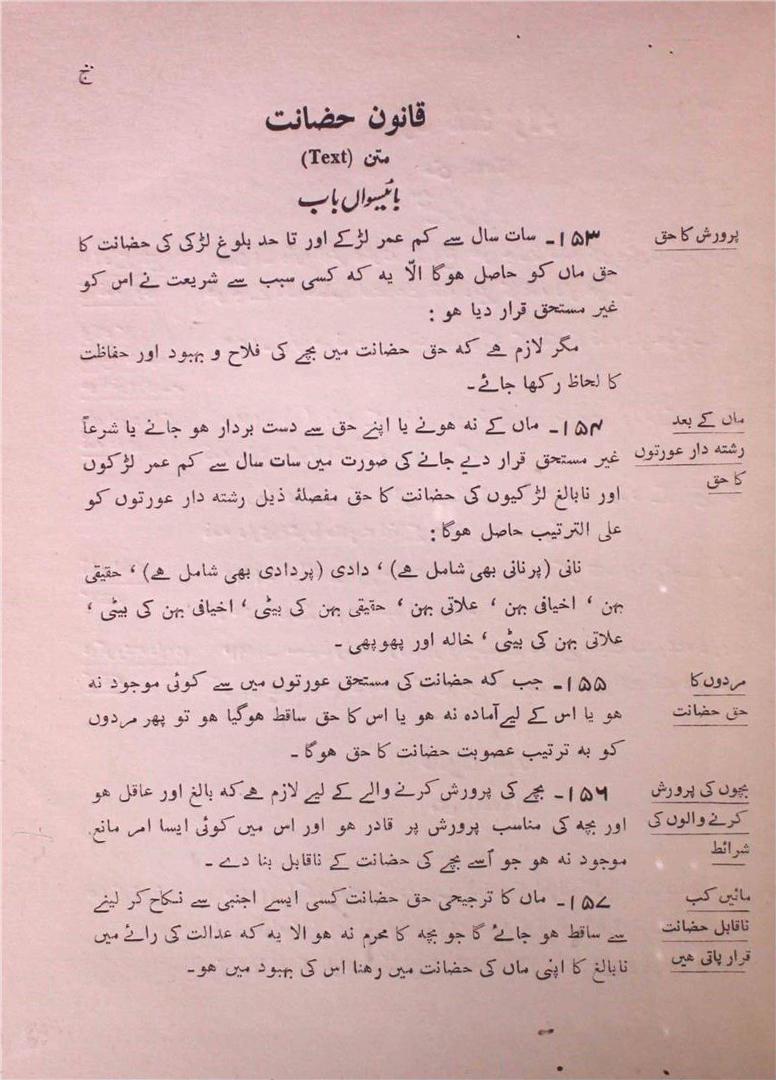 ج
قانون حضانت
متن (Text)
بائیسواں باب
پرورش کا حق
۱۵۳ـ سات سال سے کم عمر لڑکے اور تا حد بلوغ لڑکی کی حضانت کا
حق ماں کو حاصل ہوگا الّا یہ کہ کسی سبب سے شریعت نے اس کو
غیر مستحق قرار دیا ہو :
مگر لازم ہے کہ حق حضانت میں بچے کی فلاح و بہبود اور حفاظت
کا لحاظ رکھا جائے۔
ماں کے بعد
رشتہ دار عورتوں
کا حق
۱۵۴ـ ماں کے نہ ہونے یا اپنے حق سے دست بردار ہو جانے یا شرعاً
غیر مستحق قرار دیے جانے کی صورت میں سات سال سے کم عمر لڑکوں
اور نابالغ لڑکیوں کی حضانت کا حق مفصلۂ ذیل رشتہ دار عورتوں کو
علی الترتیب حاصل ہوگا :
نانی (پرنانی بھی شامل ہے) ، دادی (پردادی بھی شامل ہے) ، حقیقی
بہن ، اخیافی بہن ، علاتی بہن ، حقیقی بہن کی بیٹی ، اخیافی بہن کی بیٹی ،
علاتی بہن کی بیٹی ، خالہ اور پھوپھی ۔
مردوں کا
حق حضانت
۱۵۵ـ جب کہ حضانت کی مستحق عورتوں میں سے کوئی موجود نہ
ہو یا اس کے لیے آمادہ نہ ہو یا اس کا حق ساقط ہوگیا ہو تو پھر مردوں
کو بہ ترتیب عصوبت حضانت کا حق ہوگا ۔
بچوں کی پرورش
کرنے والوں کی
شرائط
۱۵۶ـ بچے کی پرورش کرنے والے کے لیے لازم ہے کہ بالغ اور عاقل ہو
اور بچہ کی مناسب پرورش پر قادر ہو اور اس میں کوئی ایسا امر مانع
موجود نہ ہو جو اُسے بچے کی حضانت کے ناقابل بنا دے ۔
مائیں کب
ناقابل حضانت
قرار پاتی ہیں
۱۵۷ـ ماں کا ترجیحی حق حضانت کسی ایسے اجنبی سے نکاح کر لینے
سے ساقط ہو جائے گا جو بچہ کا محرم نہ ہو الا یہ کہ عدالت کی رائے میں
نابالغ کا اپنی ماں کی حضانت میں رہنا اس کی بہبود میں ہو۔